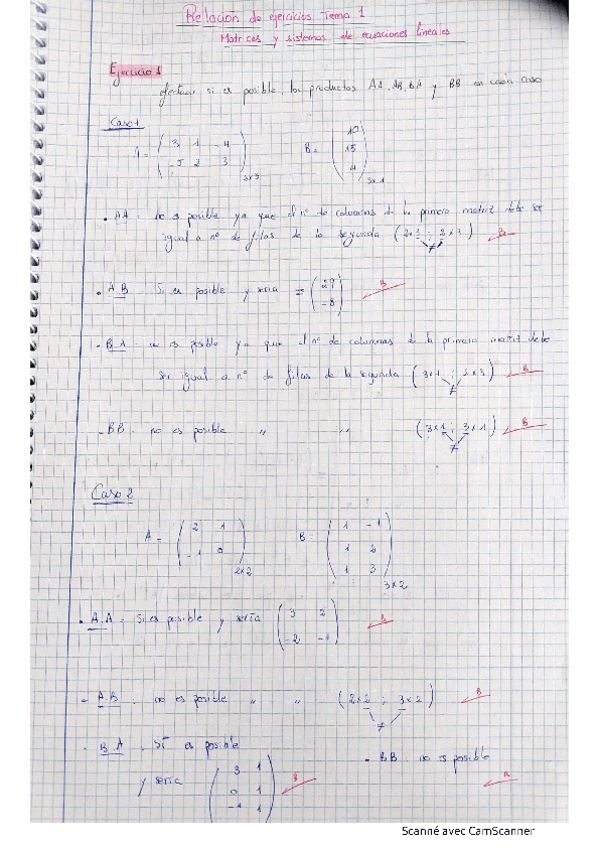 Relación de ejercicios Tema 1
Matrices y sistemas de ecuaciones lineales
Ejercicio 1
efectuar si es posible, los productos AA, AB, BA y BB en cada caso
Caso 1
A = ( 3 1 -4
-5 2 3 )
B = ( 10
15
4 ) 3x1
• AA : no es posible ya que el nº de columnas de la primera matriz debe ser
igual a nº de filas de la segunda
≠
B
• AB : Si es posible y sería = ( 29
-8 ) B
- BA : no es posible ya que el nº de columnas de la primera matriz debe
ser igual a nº de filas de la segunda
≠
B
- BB : no es posible " " ( 3x1 ; 3x1 ) B
≠
Caso 2
A = ( 2 1
-1 0 ) 2x2
B = ( 1 -1
1 2
1 3 ) 3x2
• A.A : Si es posible y sería ( 3 2
-2 -1 ) B
- A.B : no es posible " " ( 2x2 ; 3x2 ) B
≠
- B.A : Sí es posible
y sería ( 3 1
0 1
-1 1 ) B
- BB : no es posible
B
Scanné avec CamScanner